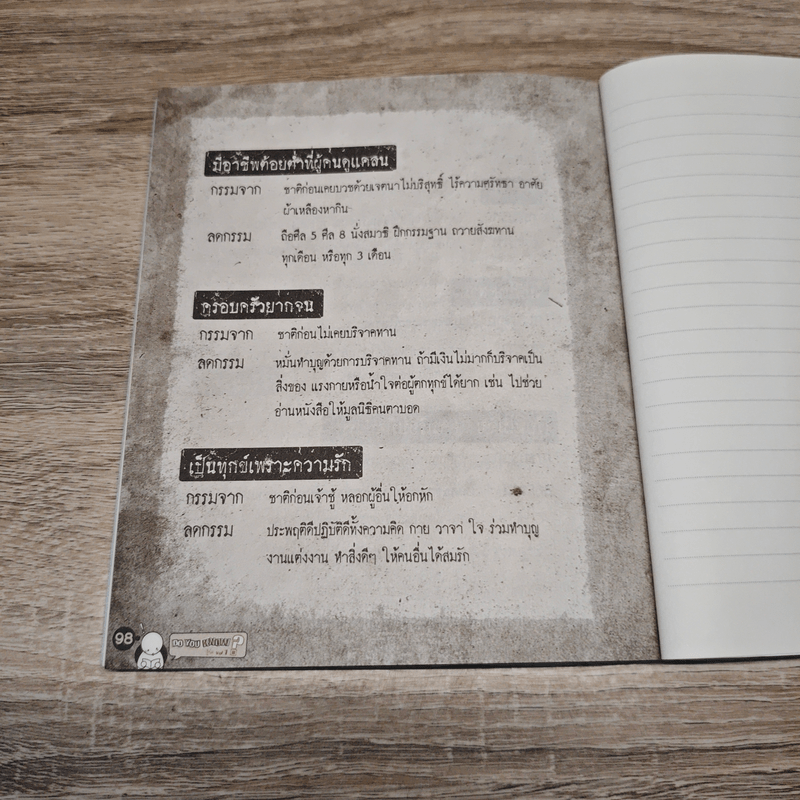 มีอาชีพต้อยต่ำที่ผู้คนดูแคลน
กรรมจาก ชาติก่อนเคยบวชด้วยเจตนาไม่บริสุทธิ์ ไร้ความศรัทธา อาศัย
ผ้าเหลืองหากิน
ลดกรรม ถือศีล 5 ศีล 8 นั่งสมาธิ ฝึกกรรมฐาน ถวายสังฆทาน
ทุกเดือน หรือทุก 3 เดือน
ครอบครัวยากจน
กรรมจาก ชาติก่อนไม่เคยบริจาคทาน
ลดกรรม หมั่นทำบุญด้วยการบริจาคทาน ถ้ามีเงินไม่มากก็บริจาคเป็น
สิ่งของ แรงกายหรือน้ำใจต่อผู้ตกทุกข์ได้ยาก เช่น ไปช่วย
อ่านหนังสือให้มูลนิธิคนตาบอด
เป็นทุกข์เพราะความรัก
กรรมจาก ชาติก่อนเจ้าชู้ หลอกผู้อื่นให้อกหัก
ลดกรรม ประพฤติดีปฏิบัติดีทั้งความคิด กาย วาจา ใจ ร่วมทำบุญ
งานแต่งงาน ทำสิ่งดีๆ ให้คนอื่นได้สมรัก
98 DO YOU